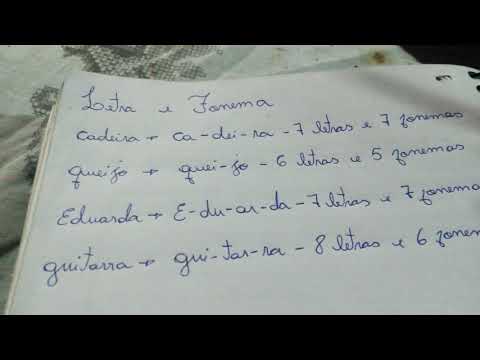 Letra e Fonema
cadeira → ca-dei-ra - 7 letras e 7 fonemas
queijo → quei-jo - 6 letras e 5 fonemas
Eduarda → E-du-ar-da - 7 letras e 7 fonemas
guitarra → gui-tar-ra - 8 letras e 6 fonem